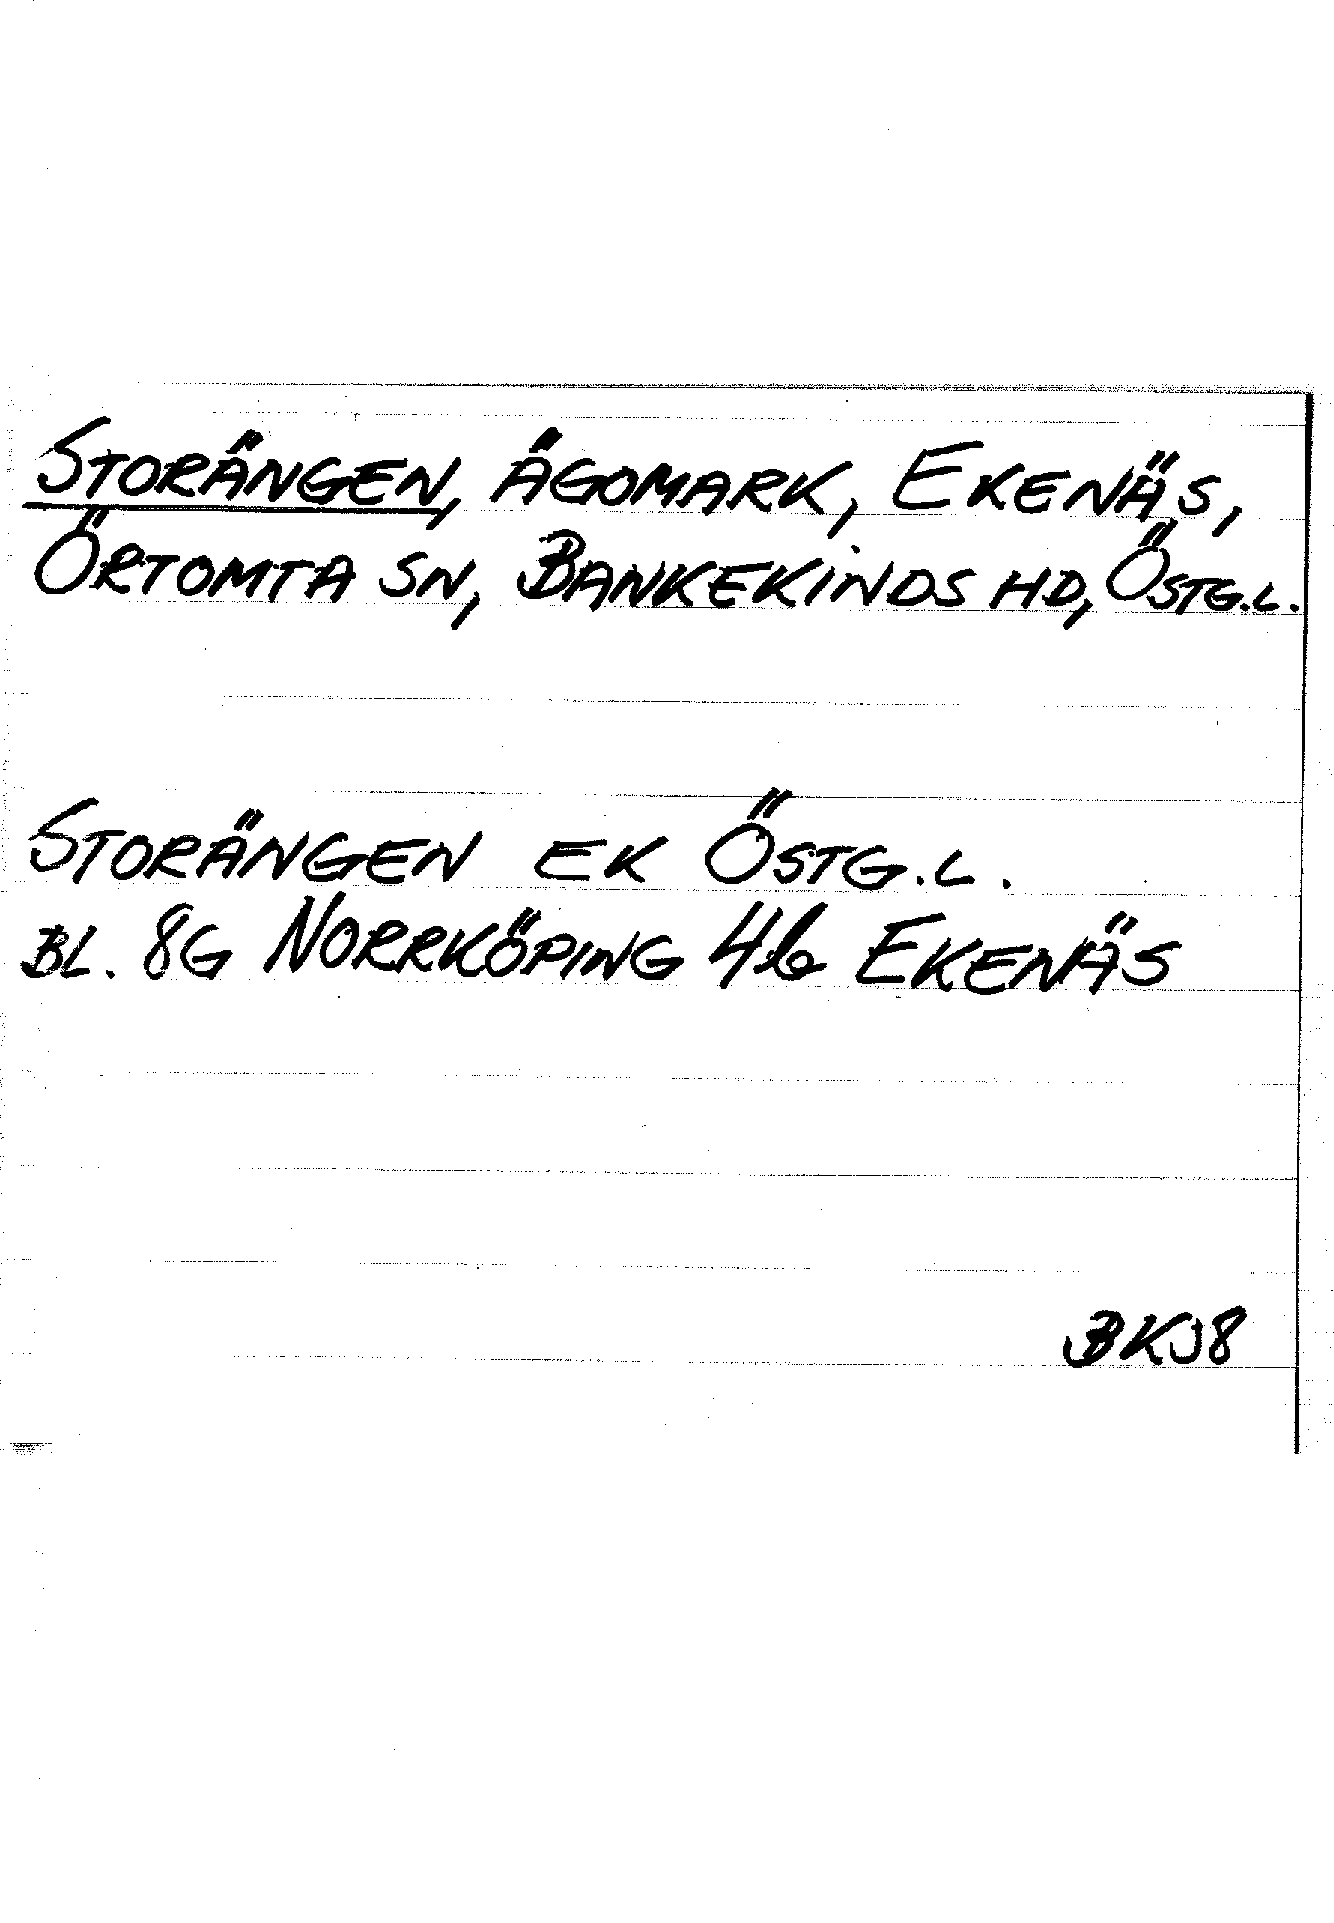 STORÄNGEN, ÄGOMARK, EKENÄS,
ÖRTOMTA SN, BANKEKINDS HD, ÖSTG.L.
STORÄNGEN EK ÖSTG.L.
BL. 8G NORRKÖPING 4b EKENÄS
BKJ8